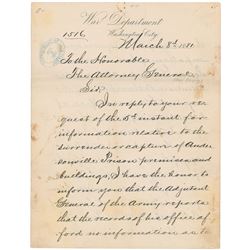 War Department
Washington City
1516
March 8d, 1881
To the Honorable
The Attorney General
Sir:
In reply to your re-
quest of the 5th instant for
information relative to the
surrender or capture of Ander-
sonville Prison premises and
buildings, I have the honor to
inform you that the Adjutant
General of the Army reports
that the records of his office af-
ford no information as to